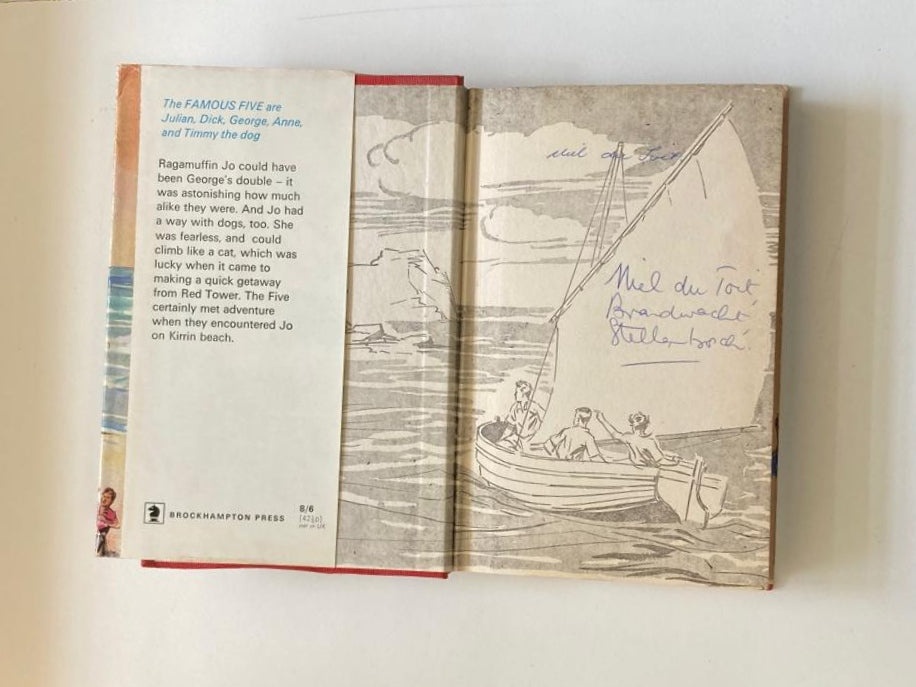 The FAMOUS FIVE are
Julian, Dick, George, Anne,
and Timmy the dog
Ragamuffin Jo could have
been George's double – it
was astonishing how much
alike they were. And Jo had
a way with dogs, too. She
was fearless, and could
climb like a cat, which was
lucky when it came to
making a quick getaway
from Red Tower. The Five
certainly met adventure
when they encountered Jo
on Kirrin beach.
BROCKHAMPTON PRESS
8/6
[42½p]
net in UK
Miel du Toit
Miel du Toit
Brandwacht
Stellenbosch.